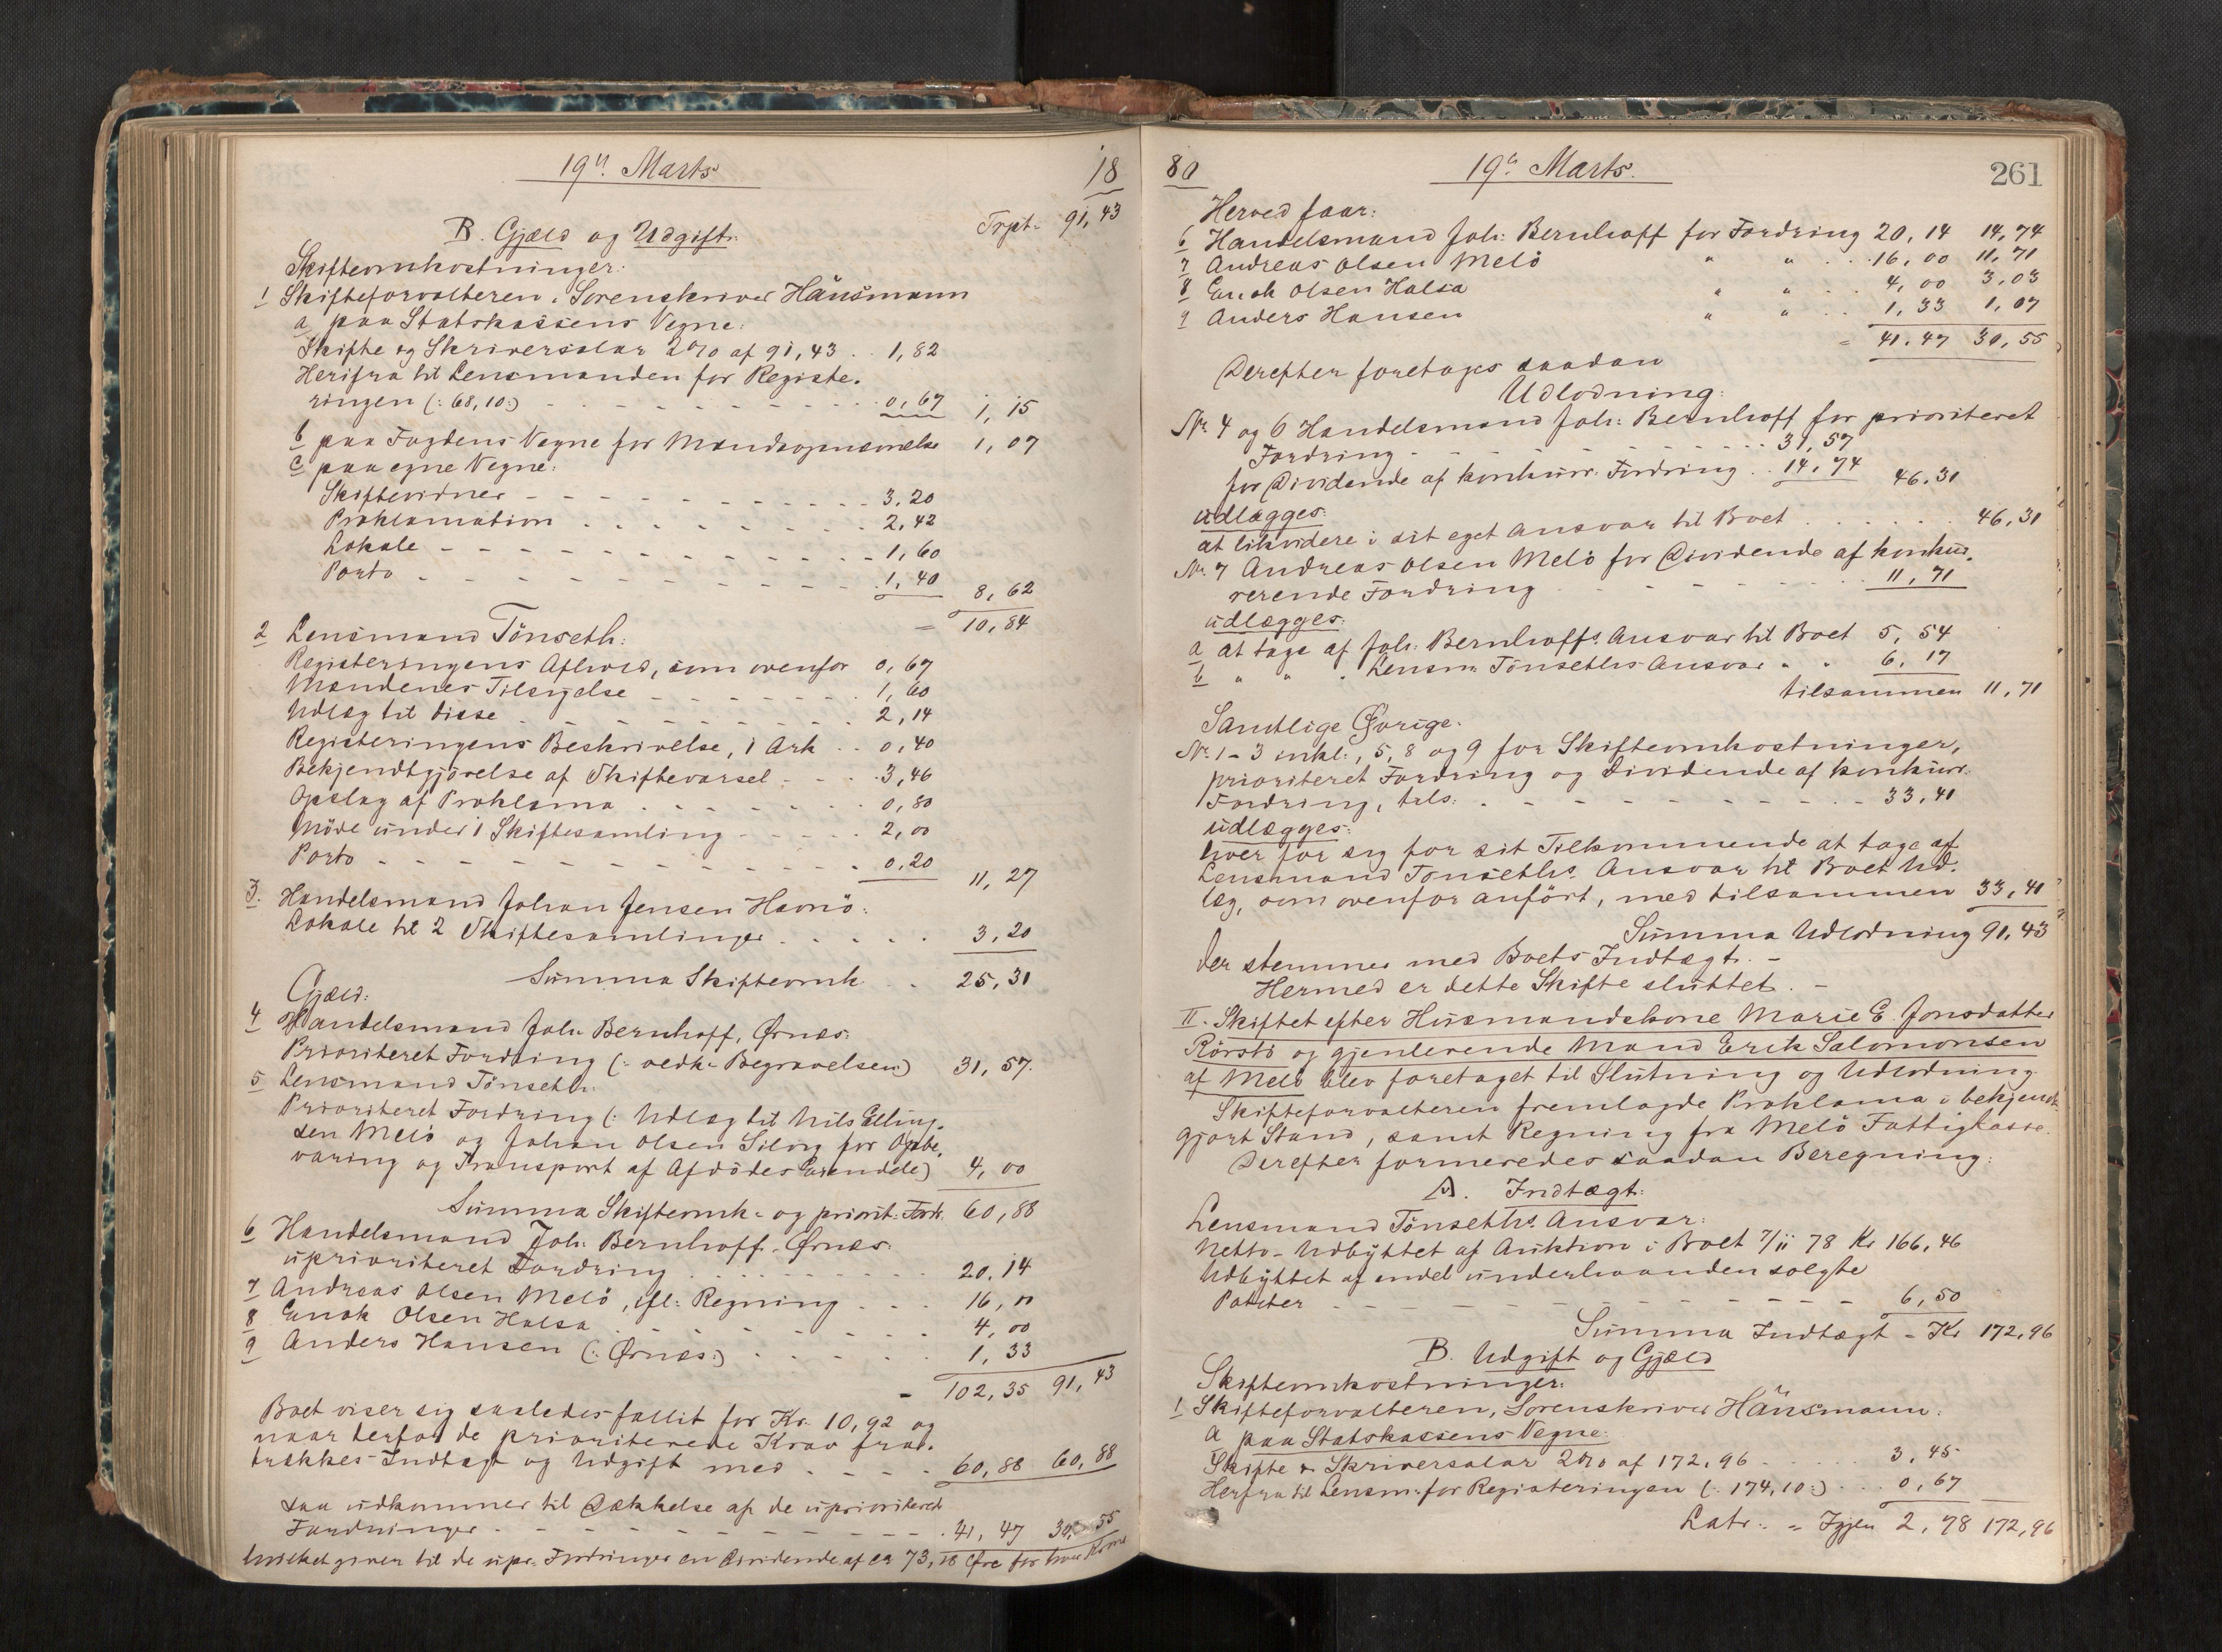 19de Marts 18
Trpt. 91,43
B. Gjæld og Udgift:
Skifteomkostninger:
1 Skifteforvalteren, Sorenskriver Hånsmann
a paa Statskassens Vegne:
Skifte og Skriversalær 2% af 91,43 . . 1,82
Herifra til Lensmanden for Registe-
ringen (: 68,10 :) - - - 0,67 1,15
b paa Fogdens Vegne for Mandsopnævnelse 1,07
c paa egne Vegne:
Skiftevidner - - - 3,20
Proklamation . . . 2,42
Lokale - - - 1,60
Porto - - - 1,40 8,62
= 10,84
2 Lensmand Tönseth:
Registeringens Afhold, som ovenfor 0,67
Mændenes Tilsigelse - - - 1,60
Udlæg til disse - - - 2,14
Registeringens Beskrivelse, 1 Ark . . 0,40
Bekjendtgjörelse af Skiftevarsel - . . 3,46
Opslag af Proklama . . . 0,80
Möde under 1 Skiftesamling - - - 2,00
Porto - - - 0,20 11,27
3. Handelsmand Johan Jensen Havnö:
Lokale til 2 Skiftesamlinger . . . 3,20
Summa Skifteomk. . 25,31
Gjæld:
4 Handelsmand Joh: Bernhoff, Ørnæs:
Prioriteret Fordring (: vedk: Begravelsen) 31,57.
5 Lensmand Tönseth:
Prioriteret Fordring (: Udlæg til Nils Elling-
sen Melö og Johan Olsen Silvig for Opbe-
varing og Transport af Afdödes Eiendele) 4,00
Summa Skifteomk: og priorit: Fordr. 60,88
6 Handelsmand Joh: Bernhoff, Ørnæs:
uprioriteret Fordring . . . 20,14
7 Andreas Olsen Melö, ifl: Regning . . . 16,00
8 Enok Olsen Halsa . . . 4,00
9 Anders Hansen (: Ørnæs:) . . . 1,33
= 102,35 91,43
Boet viser sig saaledes fallit for Kr. 10,92 og
naar derfor de prioriterede Krav fra-
trækkes Indtægt og Udgift med . . . 60,88 60,88
saa udkommer til Dækkelse af de uprioriterede
Fordringer - - - 41,47 30,55
hvilket giver til de upr: Fordringer en Dividende af ca 73,18 Øre for hver Krone
80 19de Marts. 261
Herved faar:
6 Handelsmand Joh: Bernhoff for Fordring 20,14 14,74
7 Andreas Olsen Melö " " . . . 16,00 11,71
8 Enok Olsen Halsa " " . . 4,00 3,03
9 Anders Hansen " " . . 1,33 1,07
= 41,47 30,55
Derefter foretoges saadan
Udlodning:
No 4 og 6 Handelsmand Joh: Bernhoff for prioriteret
Fordring - - - 31,57
for Dividende af konkurr: Fordring . . 14,74 46,31
udlægges:
at likvidere i sit eget Ansvar til Boet . . . 46,31
No 7 Andreas Olsen Melö for Dividende af konkur-
rerende Fordring - - - 11,71
udlægges:
a at tage af Joh: Bernhoffs Ansvar til Boet 5,54
b " " " Lensm: Tönseths Ansvar " " 6,17
tilsammen 11,71
Samtlige Øvrige:
No 1-3 inkl:, 5, 8 og 9 for Skifteomkostninger,
prioriteret Fordring og Dividende af konkurr:
Fordring, tils: - - - 33,41
udlægges:
hver for sig for sit Tilkommende at tage af
Lensmand Tönseths Ansvar til Boet Ud-
læg, som ovenfor anfört, med tilsammen 33,41
Summa Udlodning 91,43
der stemmer med Boets Indtægt. -
Hermed er dette Skifte sluttet. -
II. Skiftet efter Husmandskone Marie E. Jonsdatter
Rörstö og gjenlevende Mand Erik Salomonsen
af Melö blev foretaget til Slutning og Udlodning.
Skifteforvalteren fremlagde Proklama i bekjendt-
gjort Stand, samt Regning fra Melö Fattigkasse.
Derefter formeredes saadan Beregning:
A. Indtægt:
Lensmand Tönseths Ansvar:
Netto-Udbyttet af Auktion i Boet 7/11 78 Kr 166,46
Udbyttet af endel underhaanden solgte
Poteter - - - 6,50
Summa Indtægt - Kr 172,96
B. Udgift og Gjæld
Skifteomkostninger:
1 Skifteforvalteren, Sorenskriver Hånsmann:
a paa Statskassens Vegne:
Skifte & Skriversalær 2% af 172,96 - . . . 3,45
Herfra til Lensm: for Registeringen (: 174,10 :) . . . 0,67
Latr: = Igjen 2,78 172,96